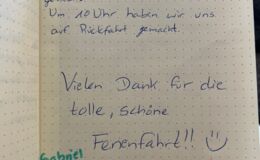 Um 10 Uhr haben wir uns
auf Rückfahrt gemacht.
Vielen Dank für die
tolle, schöne
Ferienfahrt!! :)
Gabriel